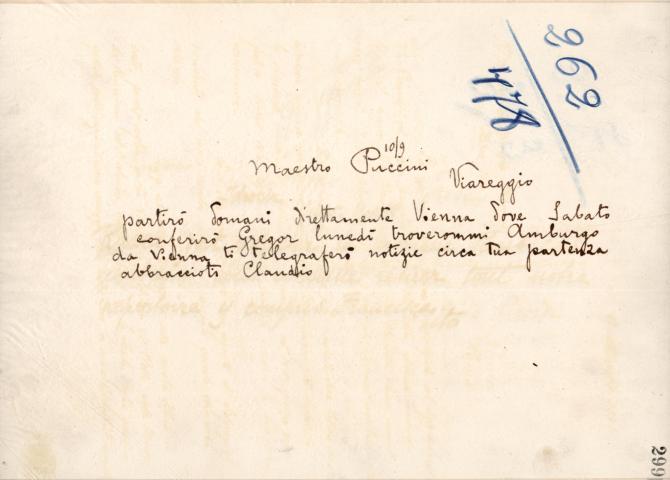 262
478
10/9
Maestro Puccini
Viareggio
partirò domani direttamente Vienna dove Sabato
conferirò Gregor lunedì troverommi Amburgo
da Vienna ti telegraferò notizie circa tua partenza
abbraccioti Claudio
299